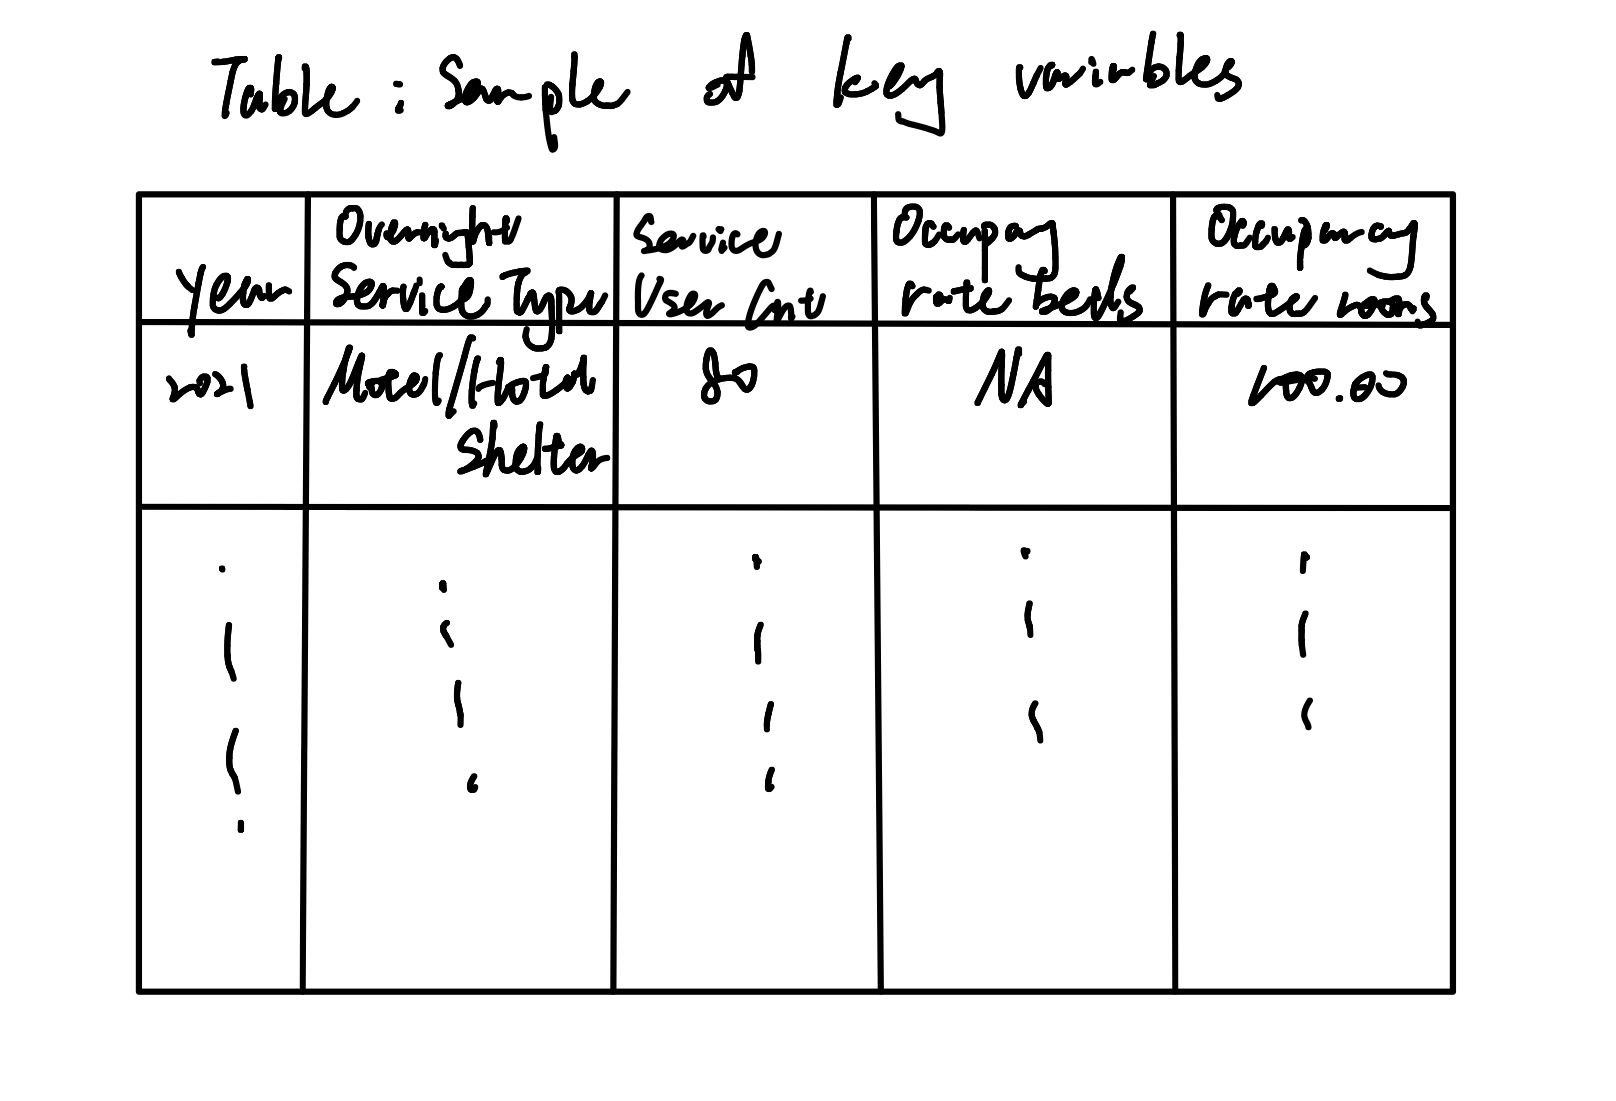 Table: Sample of key variables
Year
Overnight
Service Type
Service
User Cnt
Occupancy
rate beds
Occupancy
rate rooms
2021
Motel/Hotel
Shelter
80
NA
100.00